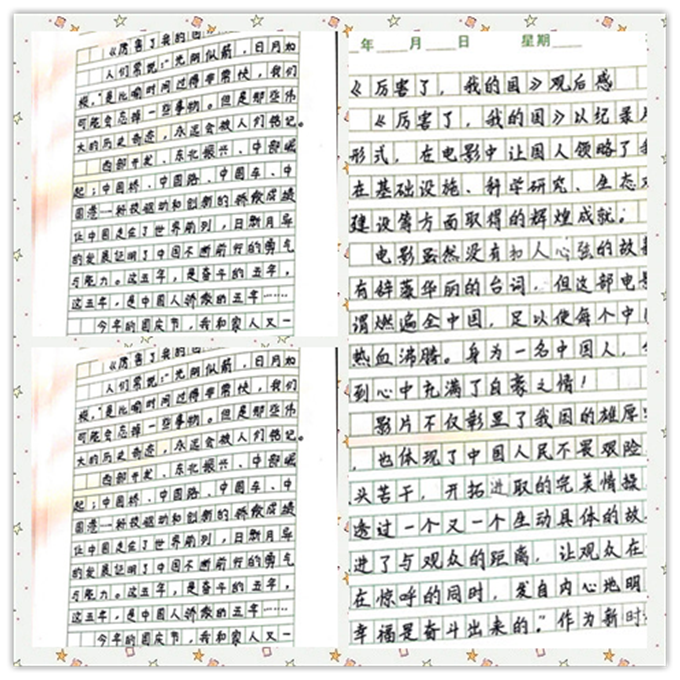 《厉害了我的国
人们常说:“光阴似箭,日月如
梭,”是比喻时间过得非常快,我们
可能会忘掉一些事物。但是那些伟
大的历史奇迹,永远会被人们铭记。
西部开发、东北振兴、中部崛
起;中国桥、中国路、中国车、中
国港一科技驱动和创新的骄傲成绩
让中国走在了世界前列,日新月异
的发展证明了中国不断前行的勇气
与能力。这五年,是奋斗的五年,
这五年,是中国人骄傲的五年……
今年的国庆节,我和家人又一
《厉害了我的国
人们常说:“光阴似箭,日月如
梭,”是比喻时间过得非常快,我们
可能会忘掉一些事物。但是那些伟
大的历史奇迹,永远会被人们铭记。
西部开发、东北振兴、中部崛
起;中国桥、中国路、中国车、中
国港一科技驱动和创新的骄傲成绩
让中国走在了世界前列,日新月异
的发展证明了中国不断前行的勇气
与能力。这五年,是奋斗的五年,
这五年,是中国人骄傲的五年……
今年的国庆节,我和家人又一
年 月 日 星期
《厉害了,我的国》观后感
《厉害了,我的国》以纪录片
形式,在电影中让国人领略了我
在基础设施、科学研究、生态环
建设等方面取得的辉煌成就。
电影虽然没有扣人心弦的故事
有辞藻华丽的台词,但这部电影
谓燃遍全中国,足以使每个中
热血沸腾。身为一名中国人,
到心中充满了自豪之情!
影片不仅彰显了我国的雄厚
,也体现了中国人民不畏艰险
头苦干,开拓进取的完美情操
透过一个又一个生动具体的故
进了与观众的距离,让观众在
在惊呼的同时,发自内心地明
幸福是奋斗出来的。”作为新时